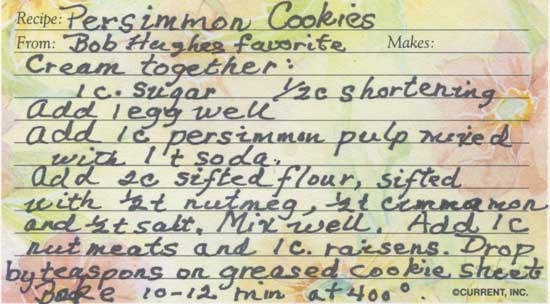 Recipe: Persimmon Cookies
From: Bob Hughes favorite Makes:
Cream together:
1c. sugar 1/2c shortening
Add 1 egg well
Add 1c persimmon pulp mixed
with 1 t soda.
Add 2c sifted flour, sifted
with 1/2t nutmeg, 1/2t cinnamon
and 1/2t salt. Mix well. Add 1c
nutmeats and 1c. raisens. Drop
by teaspoons on greased cookie sheet
Bake 10-12 min at 400°
©CURRENT, INC.